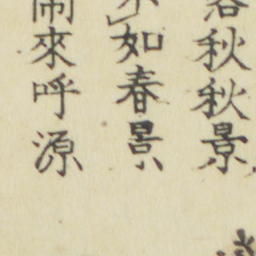 秋秋景
如春景
來呼源